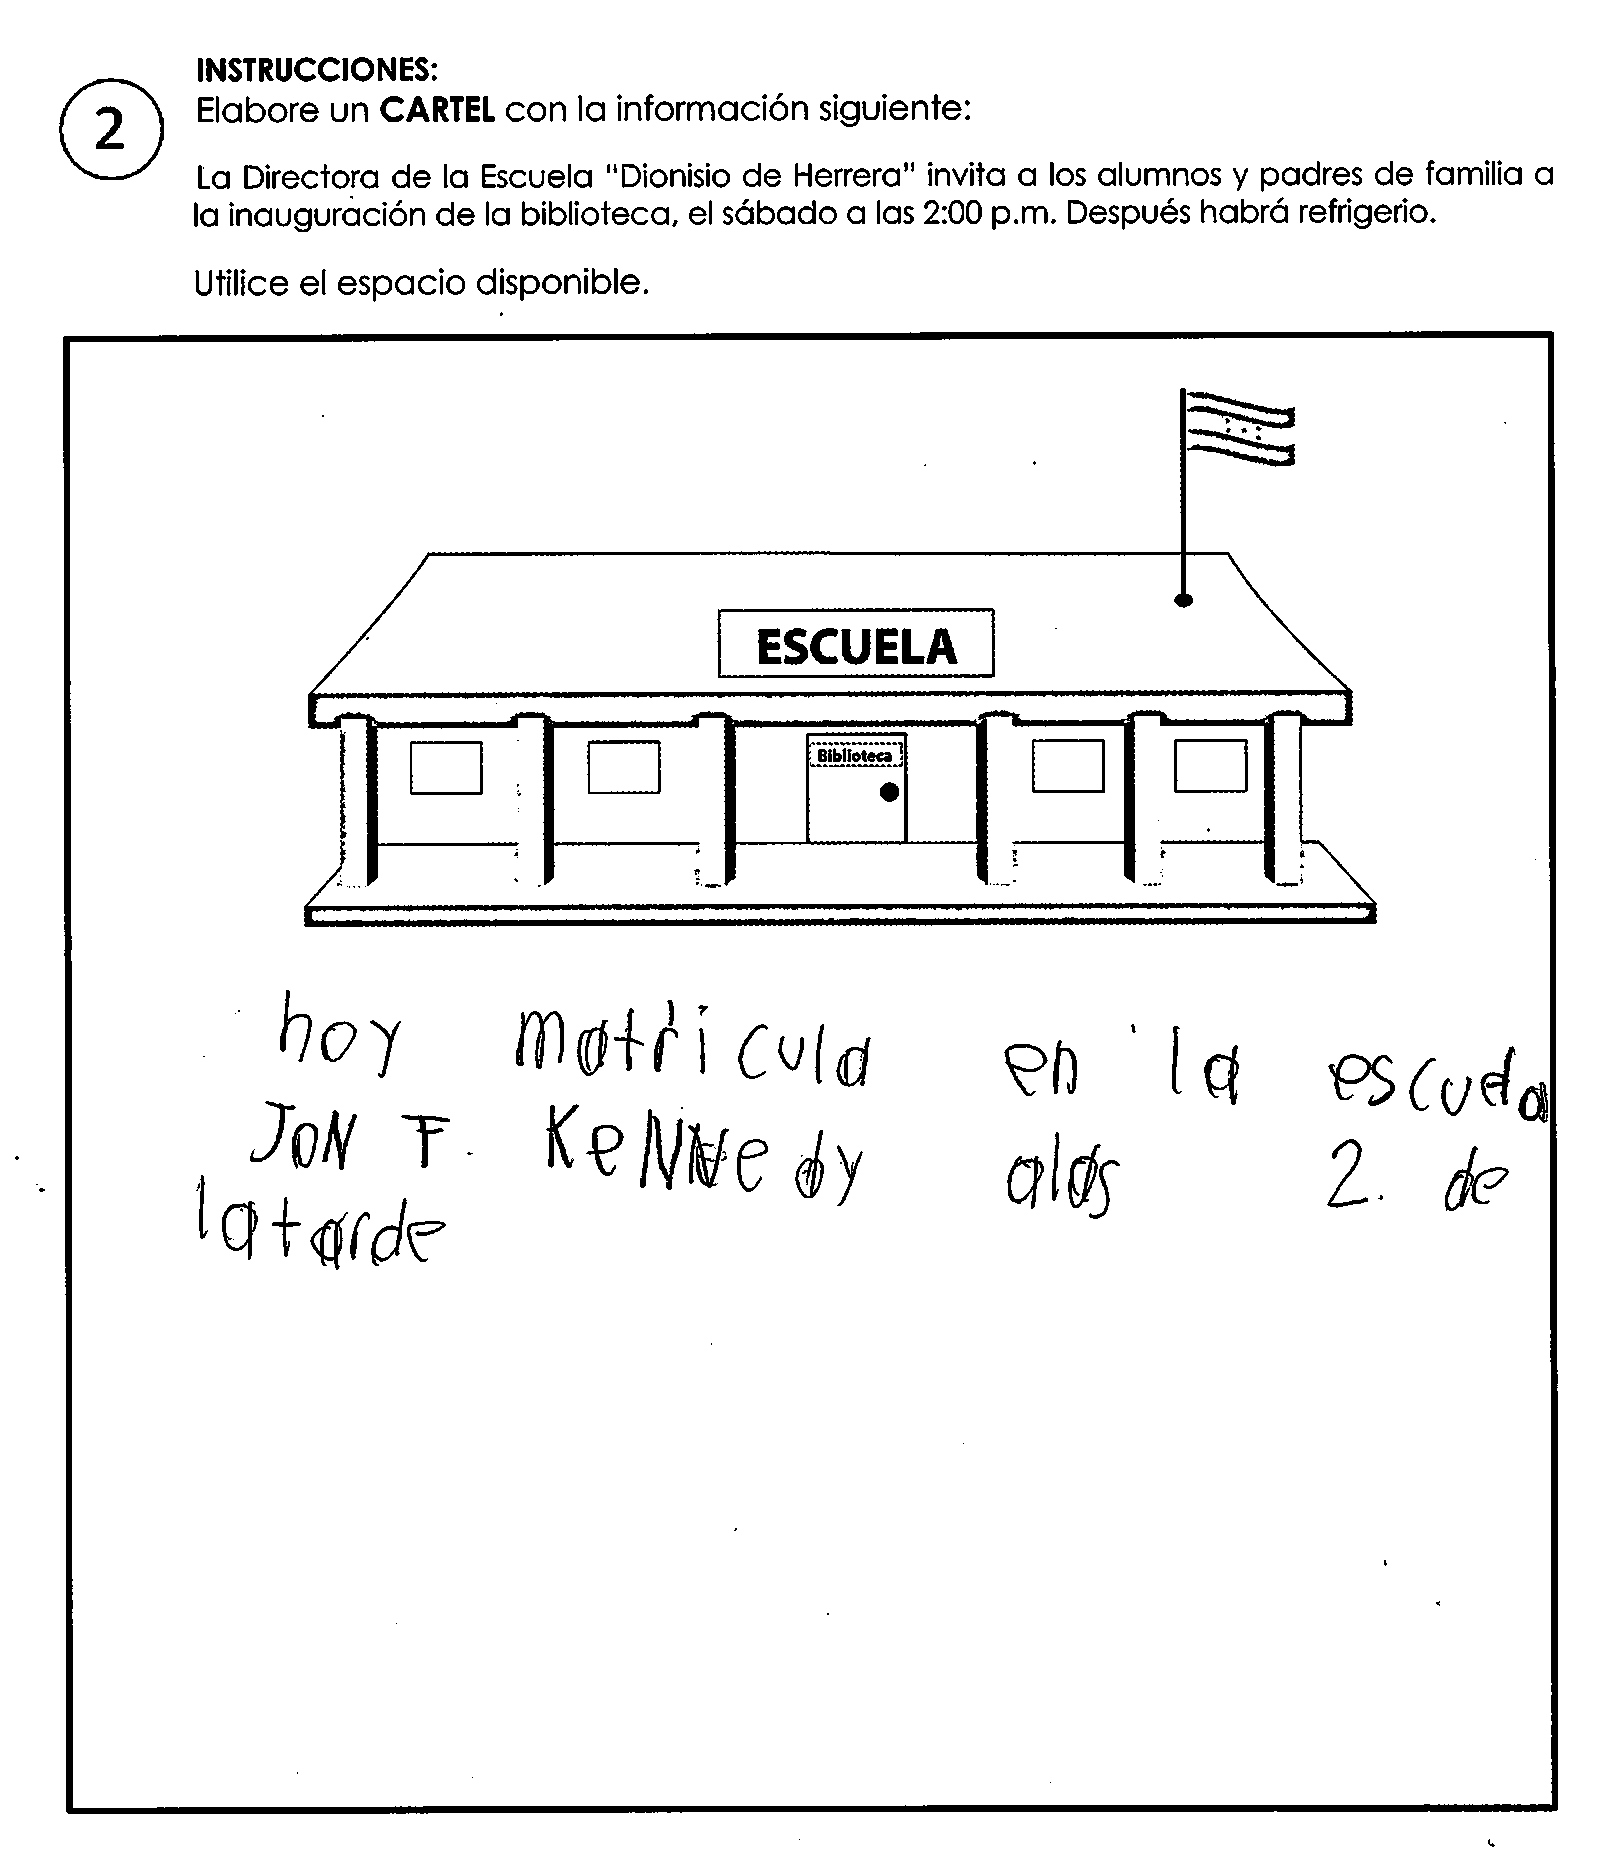 INSTRUCCIONES:
2
Elabore un CARTEL con la información siguiente:
La Directora de la Escuela "Dionisio de Herrera" invita a los alumnos y padres de familia a
la inauguración de la biblioteca, el sábado a las 2:00 p.m. Después habrá refrigerio.
Utilice el espacio disponible.
ESCUELA
Biblioteca
hoy matricula en la escuela
JON F. KeNNedy alas 2. de
latarde